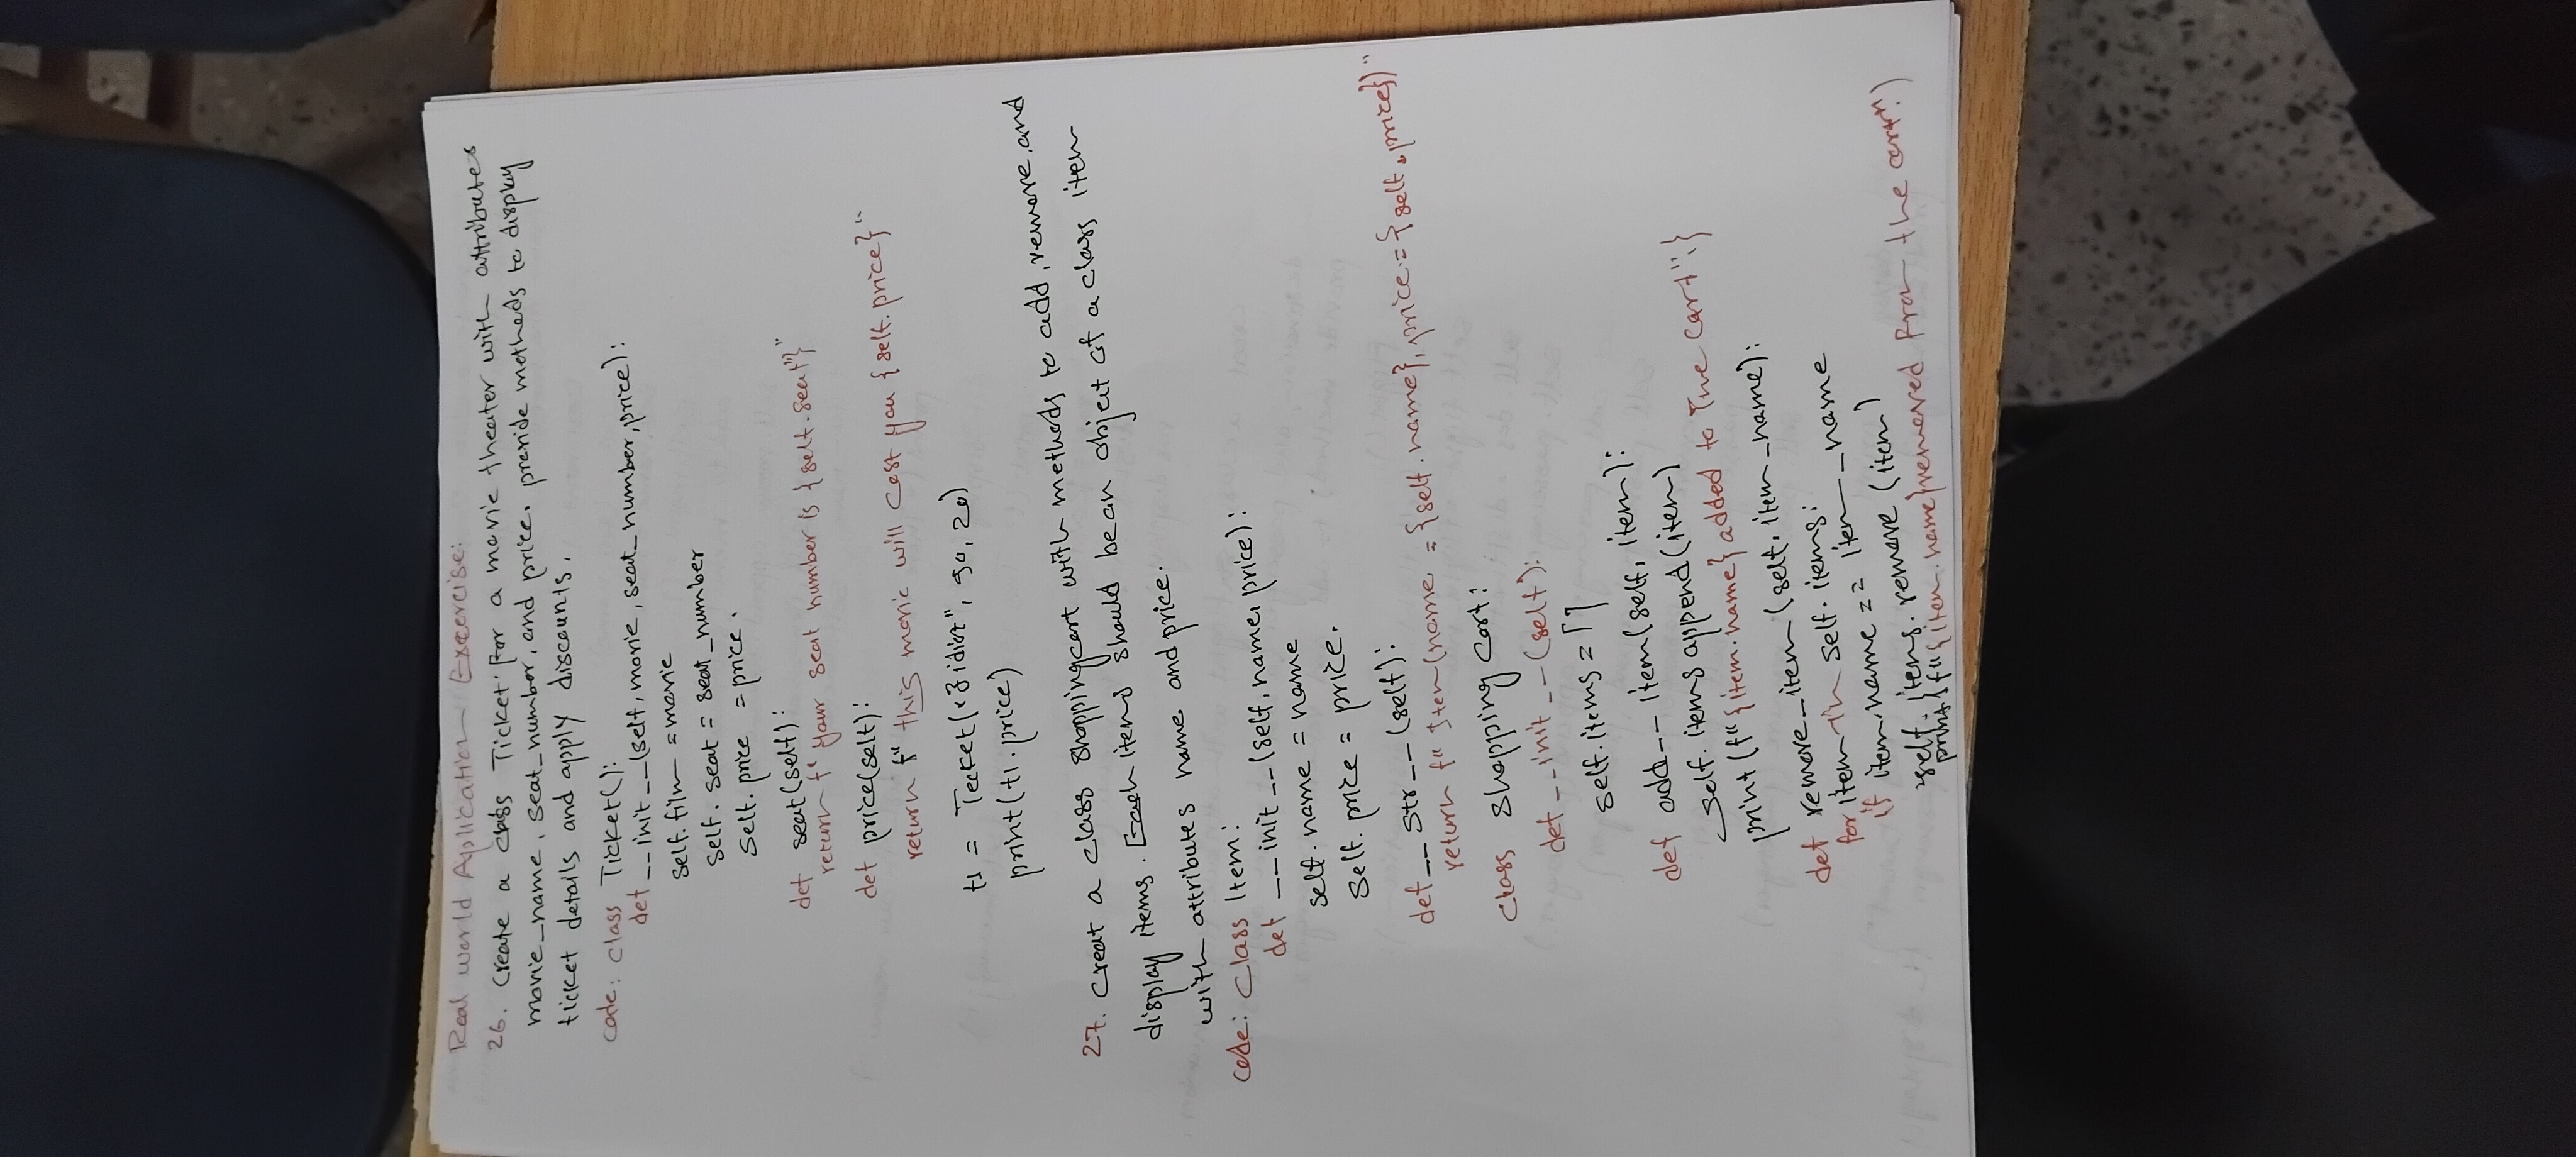 Real world Aplication Excercise:
26. Create a class Ticket for a movie theater with attributes
movie_name, seat_number, and price. provide methods to display
ticket details and apply discounts.
code: class Ticket():
def __init__(self, movie, seat_number, price):
self.film = movie
self.seat = seat_number
self.price = price.
def seat(self):
return f" your seat number is {self.seat"}"
def price(self):
return f" this movie will cost you {self.price}"
t1 = Tecket("3 idiot", 90, 20)
print(t1.price)
27. Creat a class shoppingcart with methods to add, remove, and
display items. Each items should be an object of a class item
with attributes name and price.
code: class Item:
def __init__(self, name, price):
self.name = name
self.price = price.
def __str__(self):
return f" Item(name = {self.name}, price = {self.price})"
class shopping cart:
def __init__(self):
self.items = []
def add__item(self, item):
self.items append(item)
print(f"{item.name} added to The cart".}
def remove_item(self, item_name):
for item in self.items:
if item.name == item_name
self.items.remove(item)
print(f"{item.name}removed from the cart".)